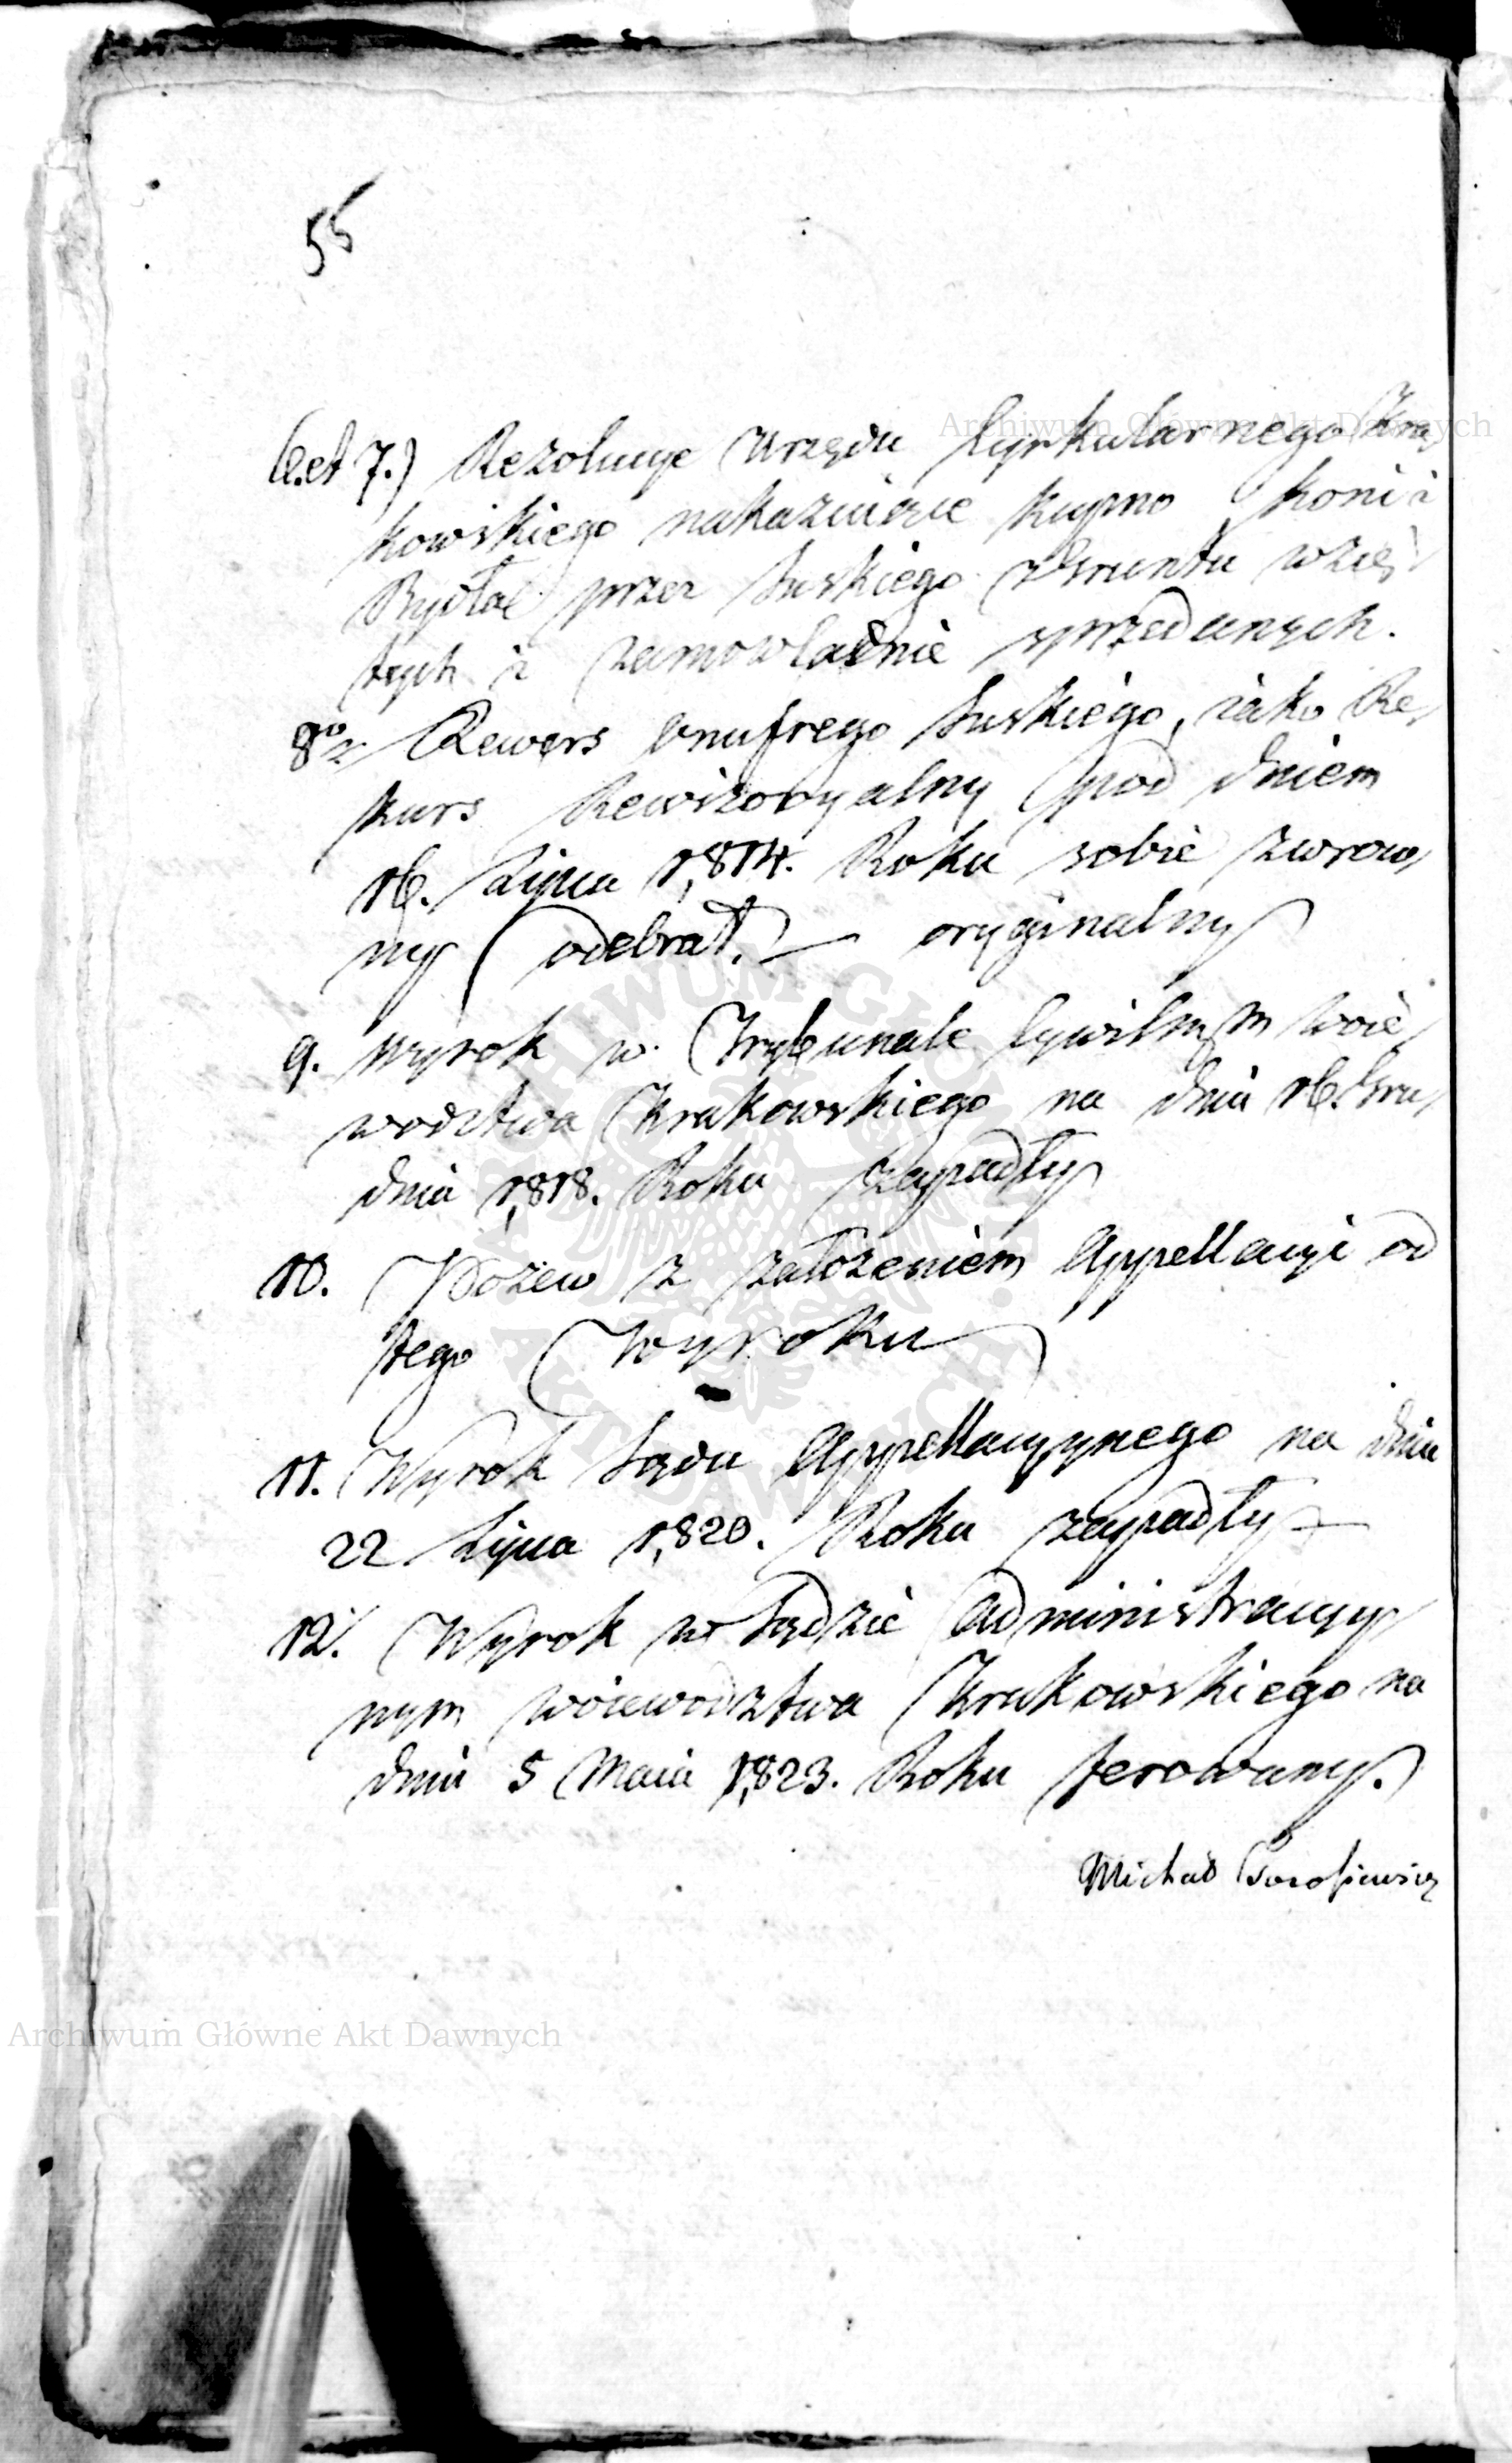 55
6. et 7.) Rezolucye Urzędu Cyrkularnego Kra,
kowskiego nakazuiące kupno Koni i
Bydła przez Suskiego z Gruntu wzię,
tych i samowlaśnie sprzedanych.
8vo Rewers Onufrego Suskiego, iako Re,
kurs Rewizoryalny pod dniem
16. Lipca 1,814. Roku sobie zwróco,
ny odebrał. — oryginalny
9. Wyrok w Trybunale Cywilnym Woie,
wodztwa Krakowskiego na dniu 16. Gru,
dnia 1,818. Roku zapadły
10. Pozew z założeniem Appellacyi od
tego Wyroku
11. Wyrok Sądu Appellacyynego na dniu
22 Lipca 1,820. Roku zapadły —
12. Wyrok w Sądzie Administracyy,
nym Woiewodztwa Krakowskiego na
dniu 5 Maia 1,823. Roku ferowany.
Michał
Archiwum Główne Akt Dawnych
Archiwum Główne Akt Dawnych
ARCHIWUM GŁÓWNE AKT DAWNYCH